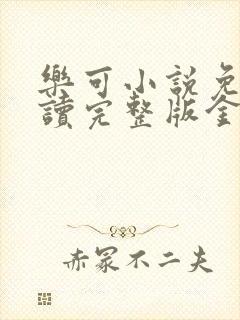 樂可小說免
讀完整版全
赤冢不二夫